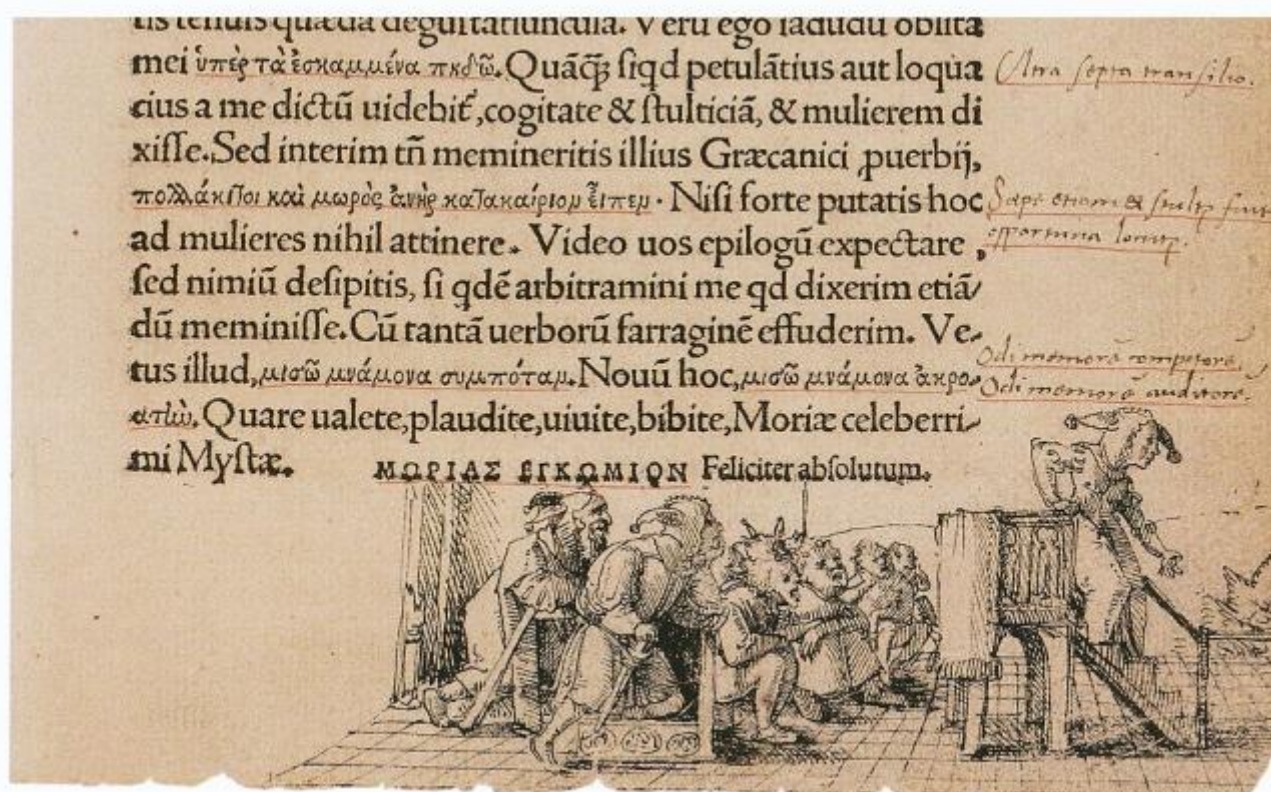 tis tenuis quædã degustatiuncula. Verũ ego iãdudũ oblita
mei ὑπὲρ τὰ ἐσκαμμένα πηδῶ. Quãꝗ̃ siqd petulãtius aut loqua
cius a me dictũ uidebit̃, cogitate & stulticiã, & mulierem di
xisse. Sed interim tñ memineritis illius Græcanici ꝓuerbij,
πολλάκι τοι καὶ μωρὸς ἀνὴρ κατακαίριον εἶπεν. Nisi forte putatis hoc
ad mulieres nihil attinere. Video uos epilogũ expectare,
sed nimiũ desipitis, si qdẽ arbitramini me qd dixerim etiã/
dũ meminisse. Cũ tantã uerborũ farraginẽ effuderim. Ve/
tus illud, μισῶ μνάμονα συμπόταν. Nouũ hoc, μισῶ μνάμονα ἀκρο/
ατὼ. Quare ualete, plaudite, uiuite, bibite, Moriæ celeberri/
mi Mystæ.
ΜΩΡΙΑΣ ΕΓΚΩΜΙΟΝ Feliciter absolutum.
Ultra septa transilio.
Sæpe etiam &
opportuna
Odi memorẽ compotorẽ.
Odi memorẽ auditorẽ.